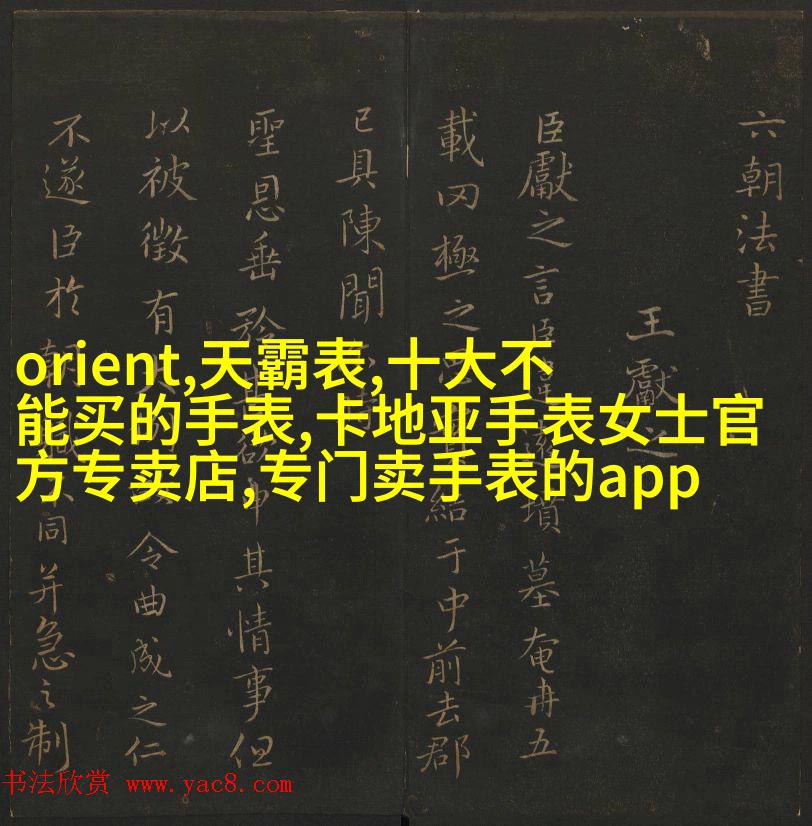 六朝法書
王獻之
臣獻之言臣墳墓奄冉五
載罔極之結于中前去郡
已具陳聞
聖恩垂矜其情事但
以被徵有令曲成之仁
不遂臣於朝同并急之制
orient,天霸表,十大不
能买的手表,卡地亚手表女士官
方专卖店,专门卖手表的app
书法欣赏 www.yac8.com